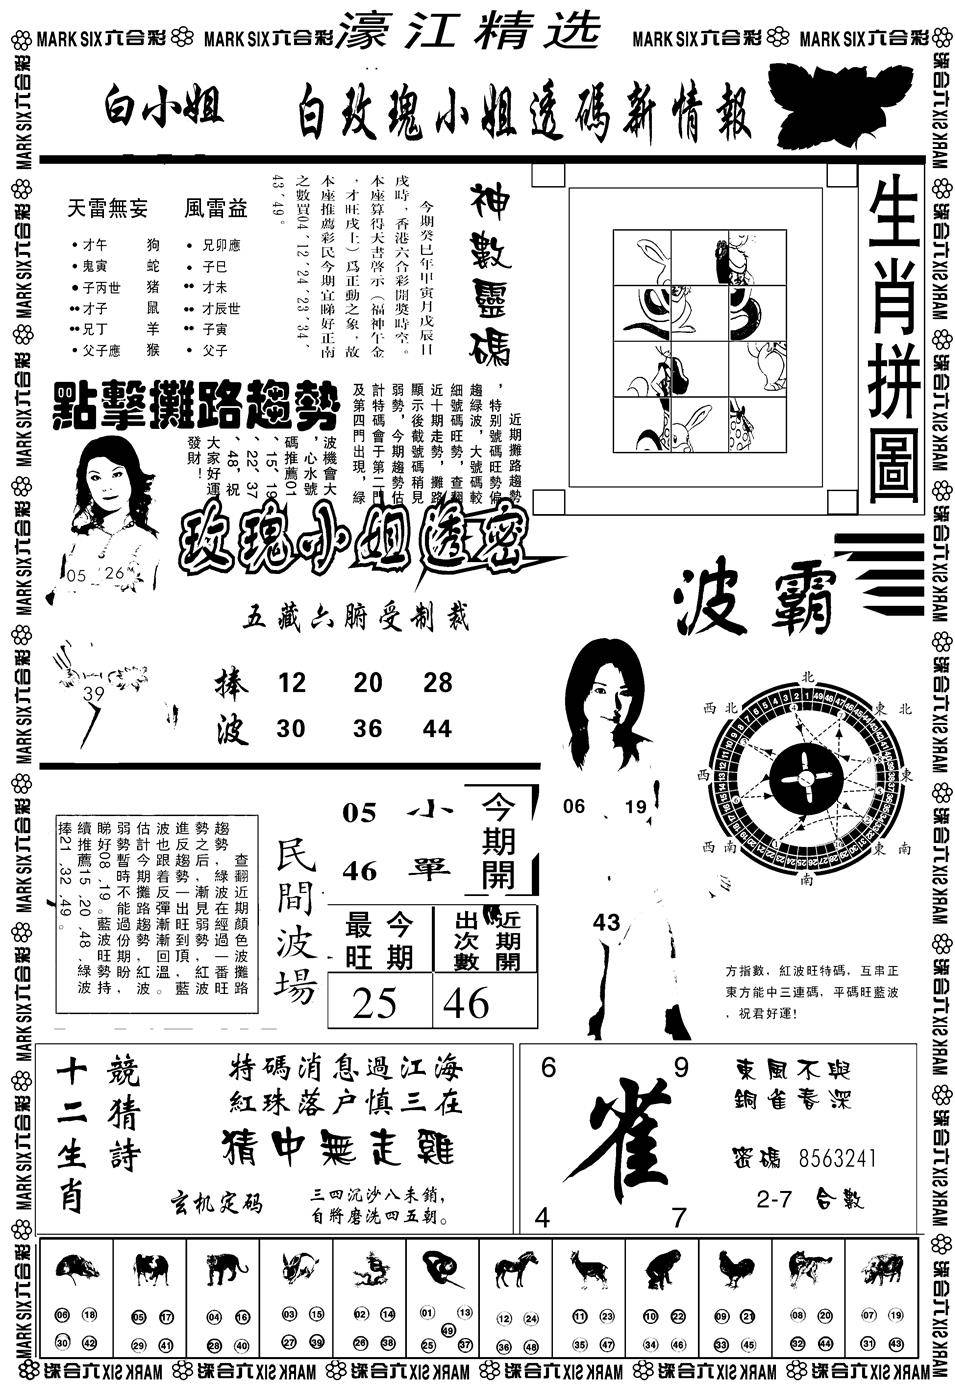 濠江精选
MARK SIX六合彩 MARK SIX六合彩 MARK SIX六合彩 MARK SIX六合彩
白小姐 白玫瑰小姐透碼新情報
天雷無妄 風雷益
才午 狗 兄卯應
鬼寅 蛇 子巳
子丙世 猪 才未
才子 鼠 才辰世
兄丁 羊 子寅
父子應 猴 父子
神數靈碼
今期癸巳年甲寅月戊辰日
戌時，香港六合彩開獎時空。
本座算得天書啓示（福神午金
，才旺戌上）爲正動之象，故
本座推薦彩民今期宜睇好正南
之數買04、12、24、23、34、
43、49。
生肖拼圖
點擊攤路趨勢
近期攤路趨勢
，特別號碼旺勢偏
趨綠波，大號碼較
細號碼旺勢，查翻
近十期走勢，攤路
顯示後截號碼稍見
弱勢，今期趨勢估
計特碼會于第二門
及第四門出現，綠
波機會大
，心水號
碼推薦01
、15、19
、22、37
、48，祝
大家好運
發財！
05 26
39
玫瑰小姐透密
五藏六腑受制裁
捧 12 20 28
波 30 36 44
波霸
北
西北 東北
西 東
西南 東南
南
06 19
43
方指數，紅波旺特碼，互串正
東方能中三連碼，平碼旺藍波
，祝君好運！
民間波場
查翻近期顏色波攤路
趨勢，綠波在經過一番旺
勢之后，漸見弱勢，紅波
進反跟趨勢一出旺到頂，藍
波也跟着反彈漸漸回溫。
估計今期攤路趨勢紅波
弱勢暫時不能過份期盼，
睇好08、19。藍波旺勢持
續推薦15、20、48，綠波
捧21、32、49。
05 小
46 單
今期開
今期最旺 近期開出次數
25 46
十二生肖
競猜詩
特碼消息過江海
紅珠落户慎三在
猜中無走雞
玄机定码
三四沉沙八未銷，
自將磨洗四五朝。
6 9
雀
4 7
東風不與
銅雀春深
密碼 8563241
2-7 合數
06 18 05 17 04 16 03 15 02 14 01 13 12 24 11 23 10 22 09 21 08 20 07 19
49
30 42 29 41 28 40 27 39 26 38 25 37 36 48 35 47 34 46 33 45 32 44 31 43
MARK SIX六合彩 MARK SIX六合彩 MARK SIX六合彩 MARK SIX六合彩 MARK SIX六合彩 MARK SIX六合彩